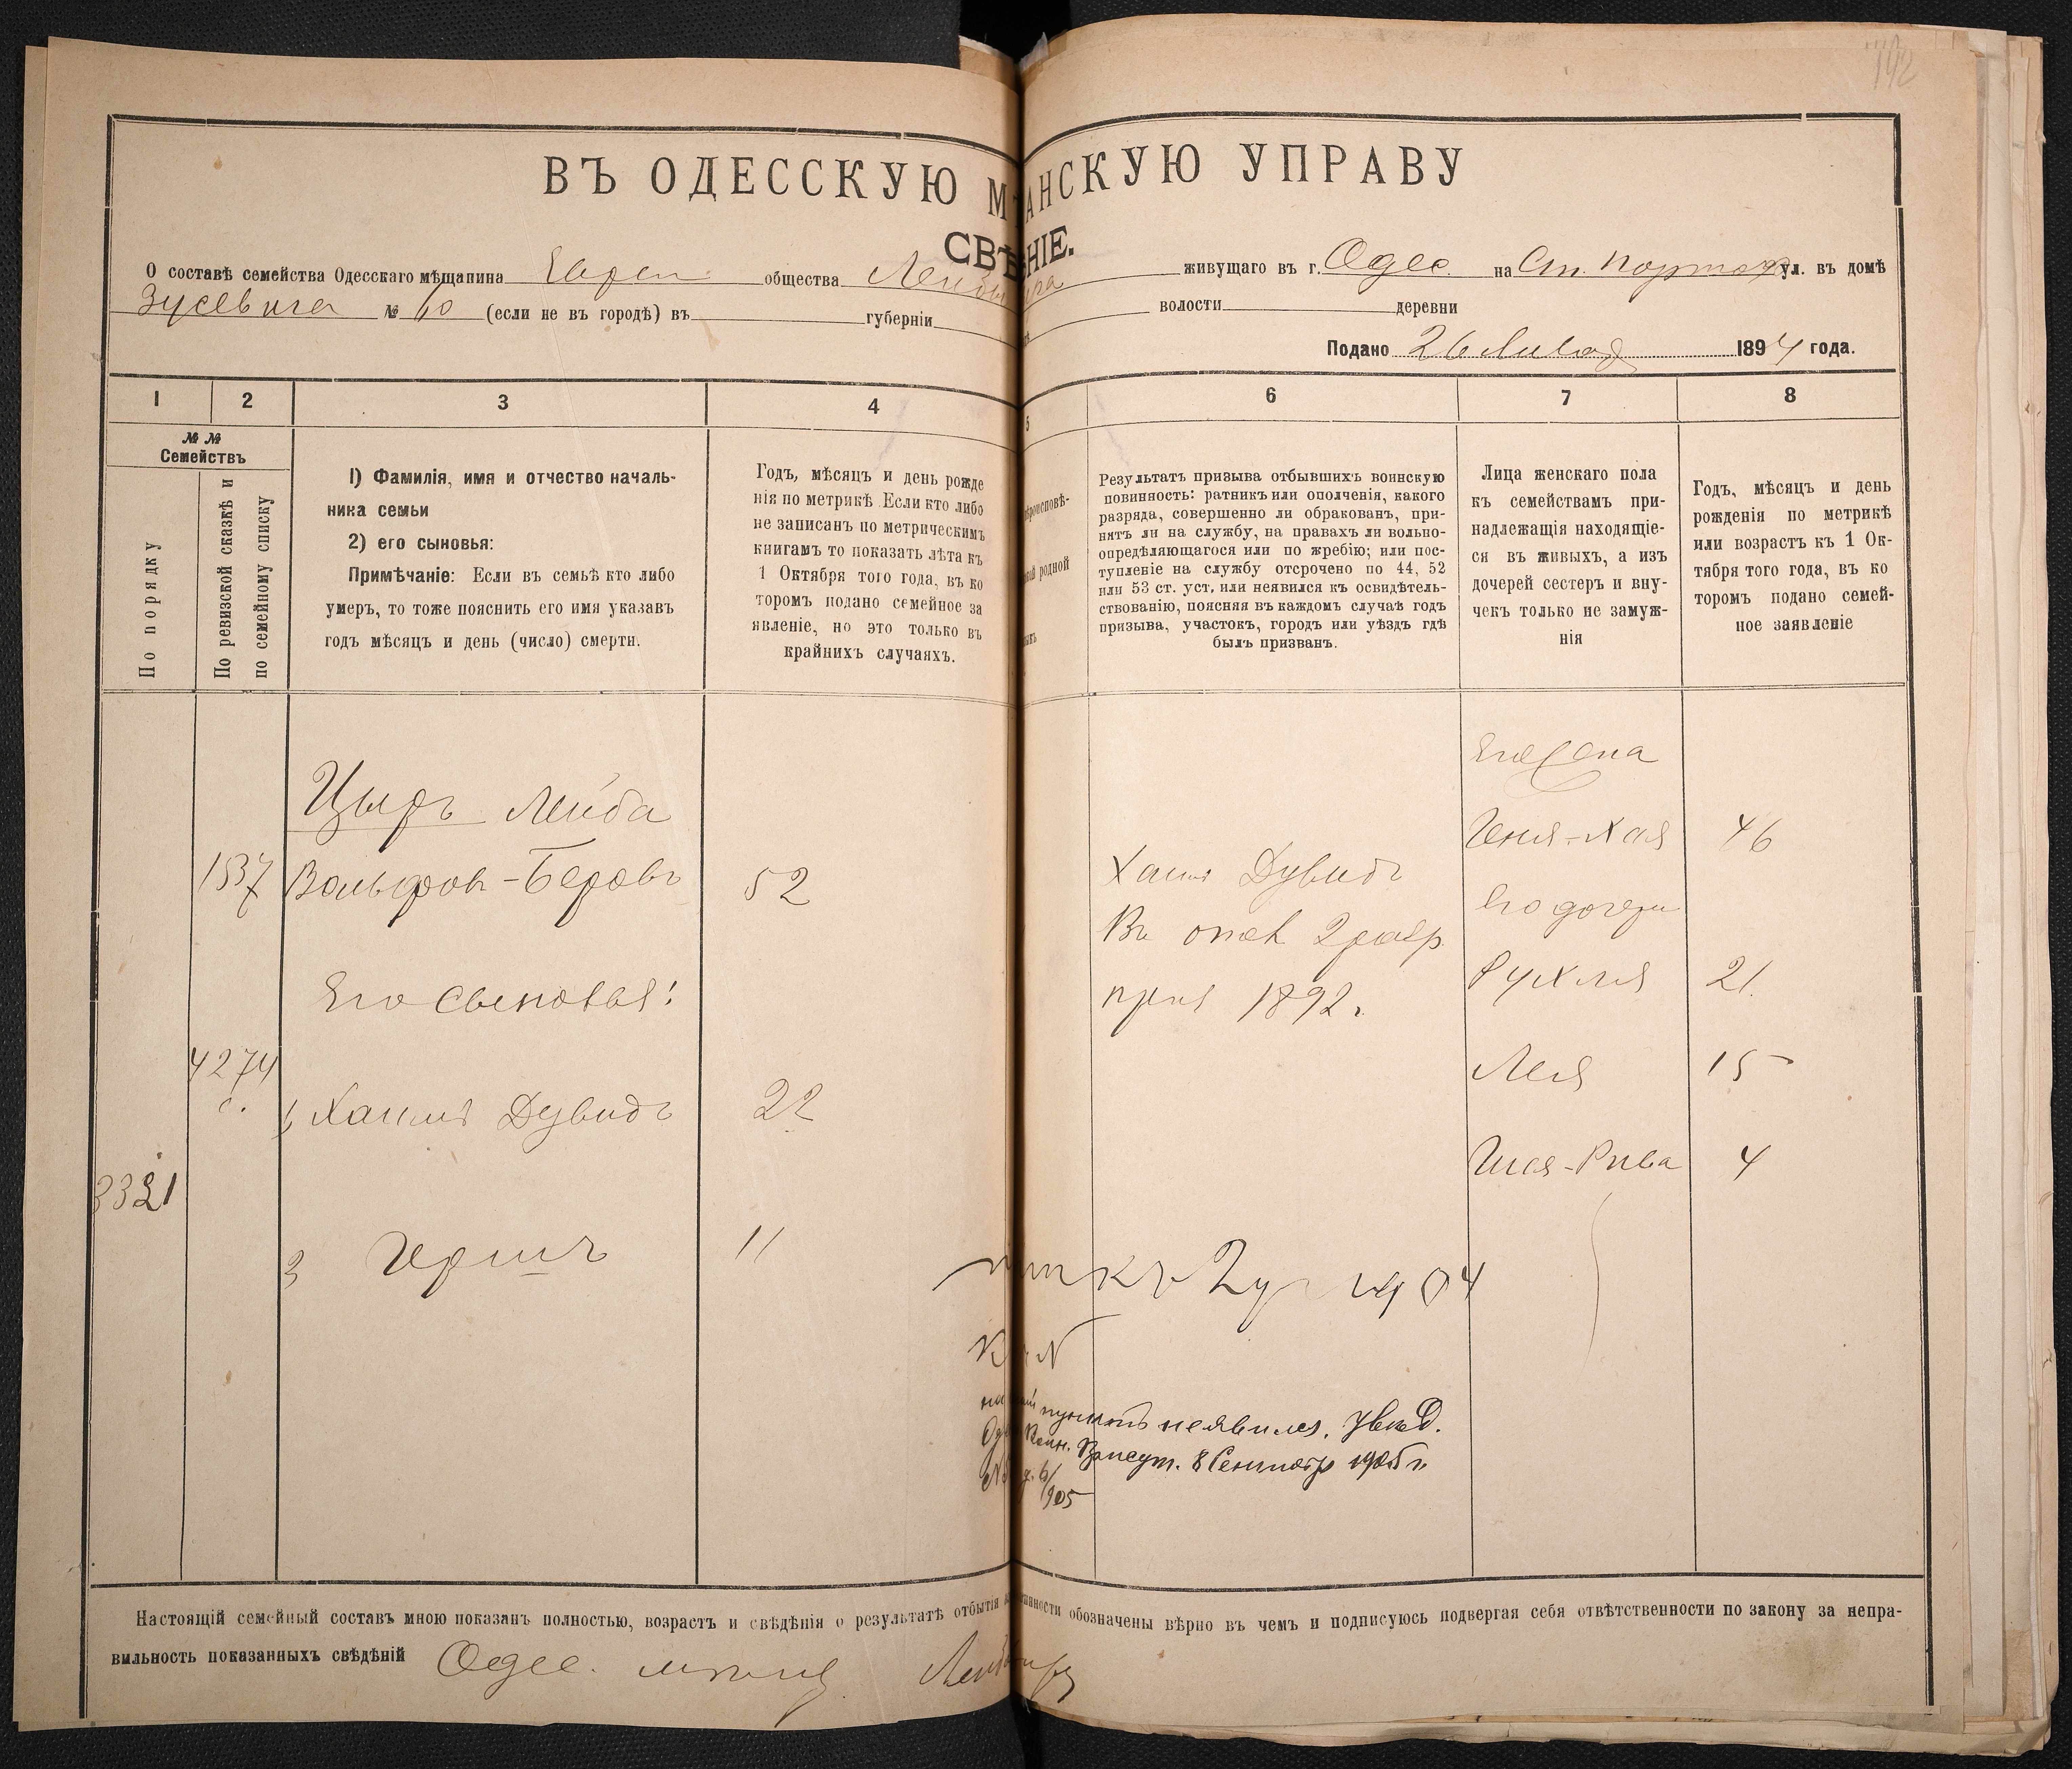 142
ВЪ ОДЕССКУЮ М АНСКУЮ УПРАВУ
СВѢ НІЕ.
О составѣ семейства Одесскаго мѣщанина Еврей общества Лейбы живущаго въ г. Одес. на Ст. Портоф ул. въ домѣ
Зусевича № 10 (если не въ городѣ) въ губерніи волости деревни
Подано 26 1894 года.
1 2 3 4 5 6 7 8
№№
Семействъ
По порядку
По ревизской сказкѣ и
по семейному списку
1) Фамилія, имя и отчество началь-
ника семьи
2) его сыновья:
Примѣчаніе: Если въ семьѣ кто либо
умеръ, то тоже пояснить его имя указавъ
годъ мѣсяцъ и день (число) смерти.
Годъ, мѣсяцъ и день рожде
нія по метрикѣ Если кто либо
не записанъ по метрическимъ
книгамъ то показать лѣта къ
1 Октября того года, въ ко
торомъ подано семейное за
явленіе, но это только въ
крайнихъ случаяхъ.
ѣроисповѣ-
родной
Результатъ призыва отбывшихъ воинскую
повинность: ратникъ или ополченія, какого
разряда, совершенно ли обракованъ, при-
нятъ ли на службу, на правахъ ли вольно-
опредѣляющагося или по жребію; или пос-
тупленіе на службу отсрочено по 44, 52
или 53 ст. уст, или неявился къ освидѣтель-
ствованію, поясняя въ каждомъ случаѣ годъ
призыва, участокъ, городъ или уѣздъ гдѣ
былъ призванъ.
Лица женскаго пола
къ семействамъ при-
надлежащія находящіе-
ся въ живыхъ, а изъ
дочерей сестеръ и вну-
чекъ только не замуж-
нія
Годъ, мѣсяцъ и день
рожденія по метрикѣ
или возрастъ къ 1 Ок-
тября того года, въ ко
торомъ подано семей-
ное заявленіе
Его жена
Цыръ Лейба
Геня-Хая 46
1537 Вольфовъ-Беровъ 52
Хаимъ Дувидъ
Его дочери
Въ опол 2 разр.
Рухля 21.
Его сыновья:
приз 1892 г.
4274
с.
Лея 15
1, Хаимъ Дувидъ 22
Шая-Рива 4
3321
3 Гершъ 11
1904
пунктъ неявился. Увѣд.
Воин. Присут. 8 Сентября 1905 г.
905
Настоящій семейный составъ мною показанъ полностью, возрастъ и свѣдѣнія о результатѣ отбытія обозначены вѣрно въ чемъ и подписуюсь подвергая себя отвѣтственности по закону за непра-
вильность показанныхъ свѣдѣній Одес.